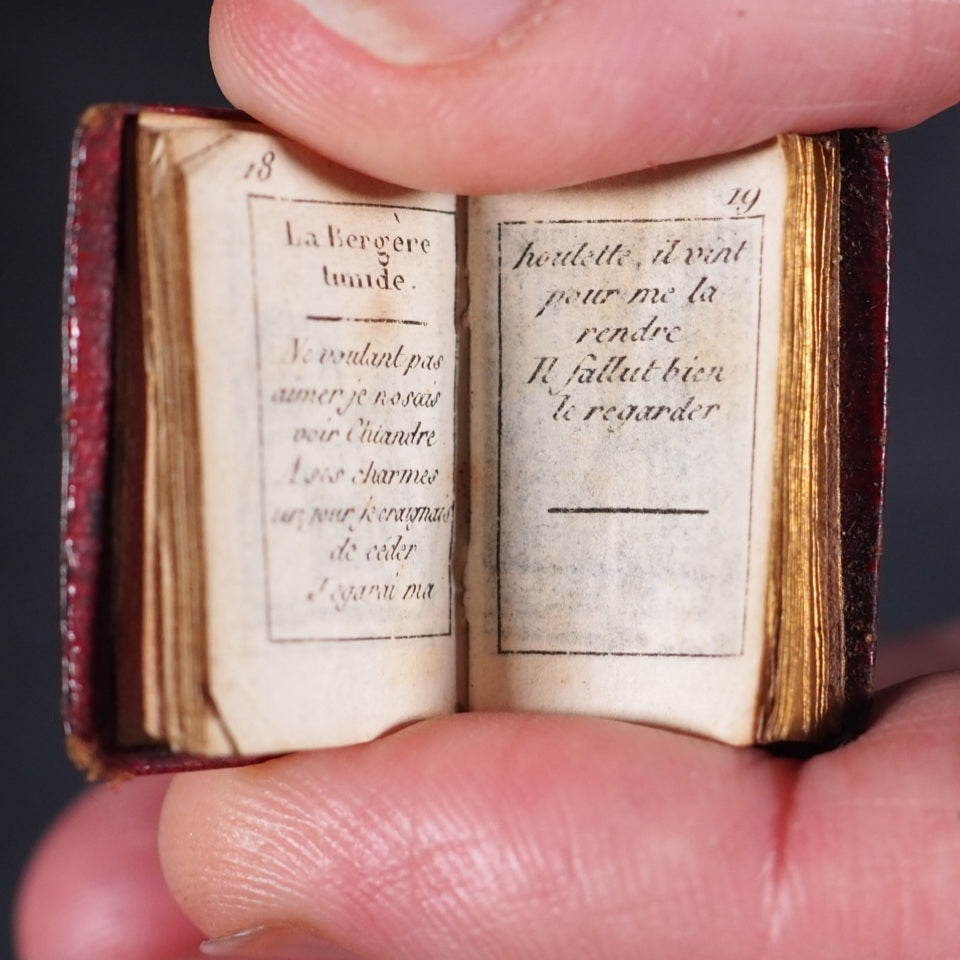 18
La Bergère
timide.
Ne voulant pas
aimer je n'osais
voir
A ses charmes
un jour je craignais
de céder
J'egarai ma
19
houlette, il vint
pour me la
rendre
Il fallut bien
le regarder